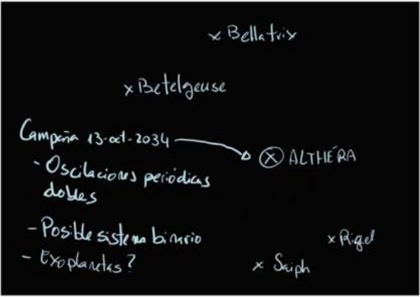 x Bellatrix
x Betelgeuse
Campaña 13-oct-2034
ⓧ ALTHÉRA
- Oscilaciones periódicas
dobles
- Posible sistema binario
- Exoplanetas?
x Rigel
x Saiph